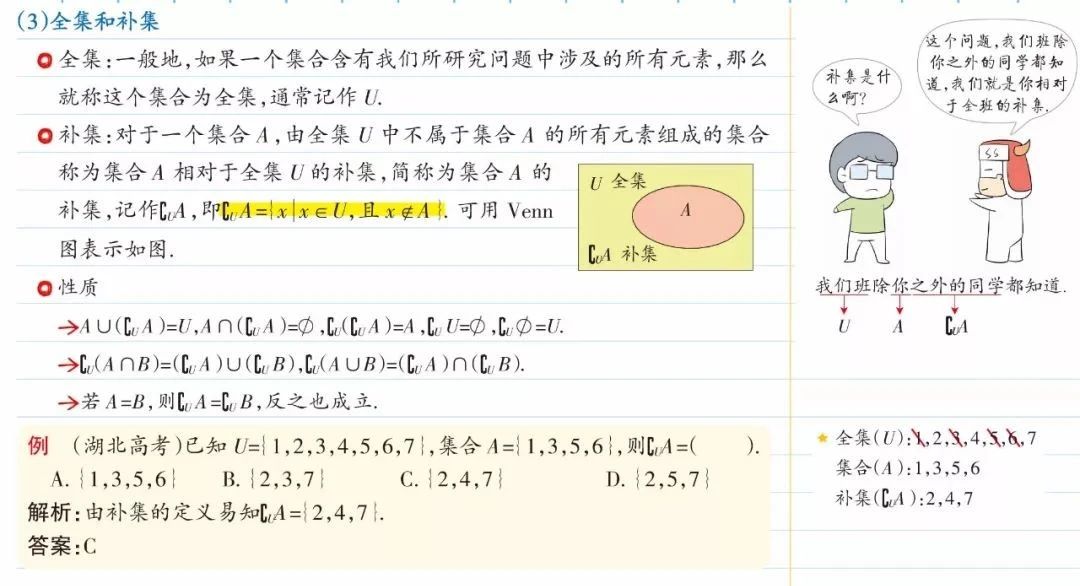 (3)全集和补集
全集:一般地,如果一个集合含有我们所研究问题中涉及的所有元素,那么
就称这个集合为全集,通常记作 U.
补集:对于一个集合 A,由全集 U 中不属于集合 A 的所有元素组成的集合
称为集合 A 相对于全集 U 的补集,简称为集合 A 的
补集,记作∁UA,即∁UA={x|x∈U,且x∉A}. 可用 Venn
图表示如图.
U 全集
A
∁UA 补集
性质
→A∪(∁UA)=U,A∩(∁UA)=∅,∁U(∁UA)=A,∁UU=∅,∁U∅=U.
→∁U(A∩B)=(∁UA)∪(∁UB),∁U(A∪B)=(∁UA)∩(∁UB).
→若 A=B,则∁UA=∁UB,反之也成立.
例 (湖北高考)已知 U={1,2,3,4,5,6,7},集合 A={1,3,5,6},则∁UA=( ).
A. {1,3,5,6} B. {2,3,7} C. {2,4,7} D. {2,5,7}
解析:由补集的定义易知∁UA={2,4,7}.
答案:C
补集是什
么啊?
这个问题,我们班除
你之外的同学都知
道,我们就是你相对
于全班的补集.
我们班除你之外的同学都知道.
U A ∁UA
★ 全集(U):1,2,3,4,5,6,7
集合(A):1,3,5,6
补集(∁UA):2,4,7